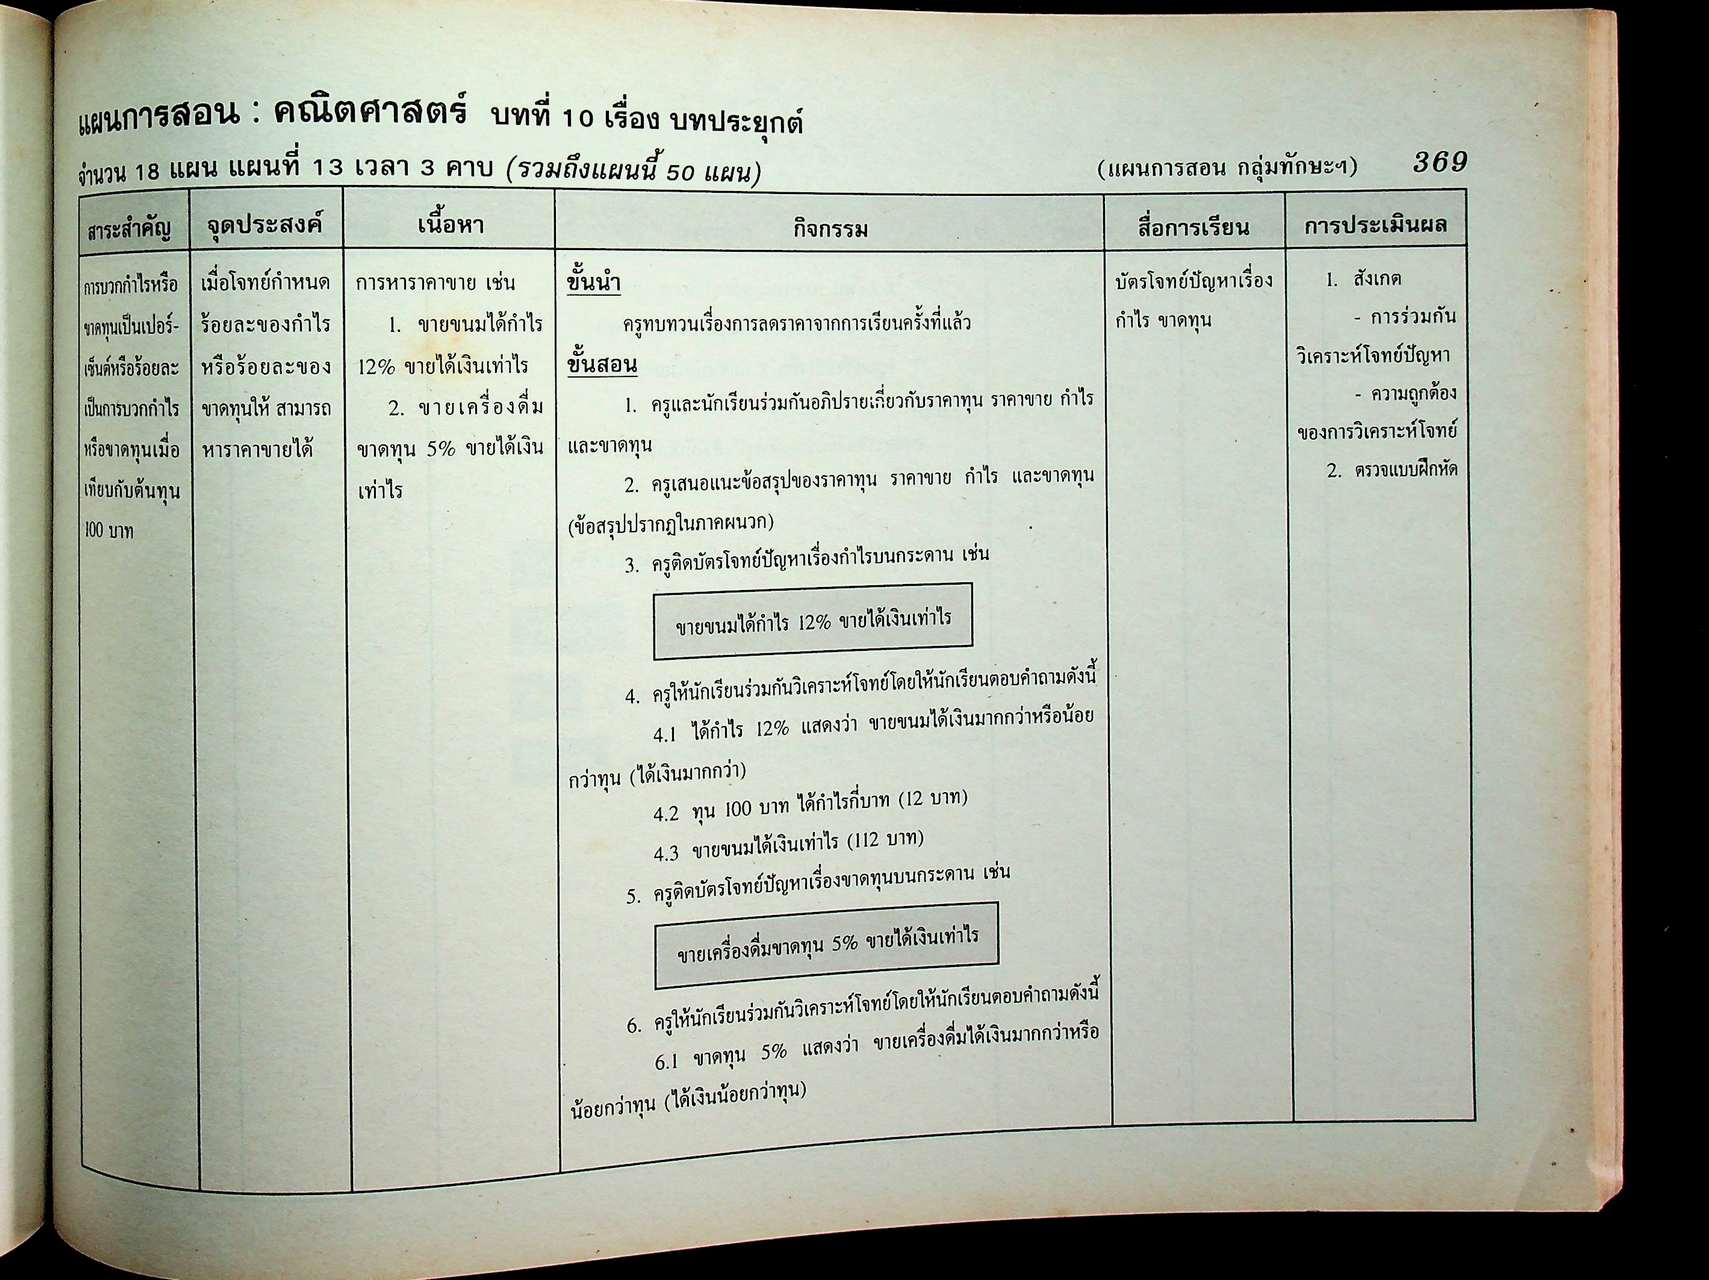 แผนการสอน : คณิตศาสตร์ บทที่ 10 เรื่อง บทประยุกต์
จำนวน 18 แผน แผนที่ 13 เวลา 3 คาบ (รวมถึงแผนนี้ 50 แผน)
(แผนการสอน กลุ่มทักษะฯ) 369
สาระสำคัญ
การบวกกำไรหรือ
ขาดทุนเป็นเปอร์-
เซ็นต์หรือร้อยละ
เป็นการบวกกำไร
หรือขาดทุนเมื่อ
เทียบกับต้นทุน
100 บาท
จุดประสงค์
เมื่อโจทย์กำหนด
ร้อยละของกำไร
หรือร้อยละของ
ขาดทุนให้ สามารถ
หาราคาขายได้
เนื้อหา
การหาราคาขาย เช่น
1. ขายขนมได้กำไร
12% ขายได้เงินเท่าไร
2. ขายเครื่องดื่ม
ขาดทุน 5% ขายได้เงิน
เท่าไร
กิจกรรม
ขั้นนำ
ครูทบทวนเรื่องการลดราคาจากการเรียนครั้งที่แล้ว
ขั้นสอน
1. ครูและนักเรียนร่วมกันอภิปรายเกี่ยวกับราคาทุน ราคาขาย กำไร
และขาดทุน
2. ครูเสนอแนะข้อสรุปของราคาทุน ราคาขาย กำไร และขาดทุน
(ข้อสรุปปรากฏในภาคผนวก)
3. ครูติดบัตรโจทย์ปัญหาเรื่องกำไรบนกระดาน เช่น
ขายขนมได้กำไร 12% ขายได้เงินเท่าไร
4. ครูให้นักเรียนร่วมกันวิเคราะห์โจทย์โดยให้นักเรียนตอบคำถามดังนี้
4.1 ได้กำไร 12% แสดงว่า ขายขนมได้เงินมากกว่าหรือน้อย
กว่าทุน (ได้เงินมากกว่า)
4.2 ทุน 100 บาท ได้กำไรกี่บาท (12 บาท)
4.3 ขายขนมได้เงินเท่าไร (112 บาท)
5. ครูติดบัตรโจทย์ปัญหาเรื่องขาดทุนบนกระดาน เช่น
ขายเครื่องดื่มขาดทุน 5% ขายได้เงินเท่าไร
6. ครูให้นักเรียนร่วมกันวิเคราะห์โจทย์โดยให้นักเรียนตอบคำถามดังนี้
6.1 ขาดทุน 5% แสดงว่า ขายเครื่องดื่มได้เงินมากกว่าหรือ
น้อยกว่าทุน (ได้เงินน้อยกว่าทุน)
สื่อการเรียน
บัตรโจทย์ปัญหาเรื่อง
กำไร ขาดทุน
การประเมินผล
1. สังเกต
- การร่วมกัน
วิเคราะห์โจทย์ปัญหา
- ความถูกต้อง
ของการวิเคราะห์โจทย์
2. ตรวจแบบฝึกหัด